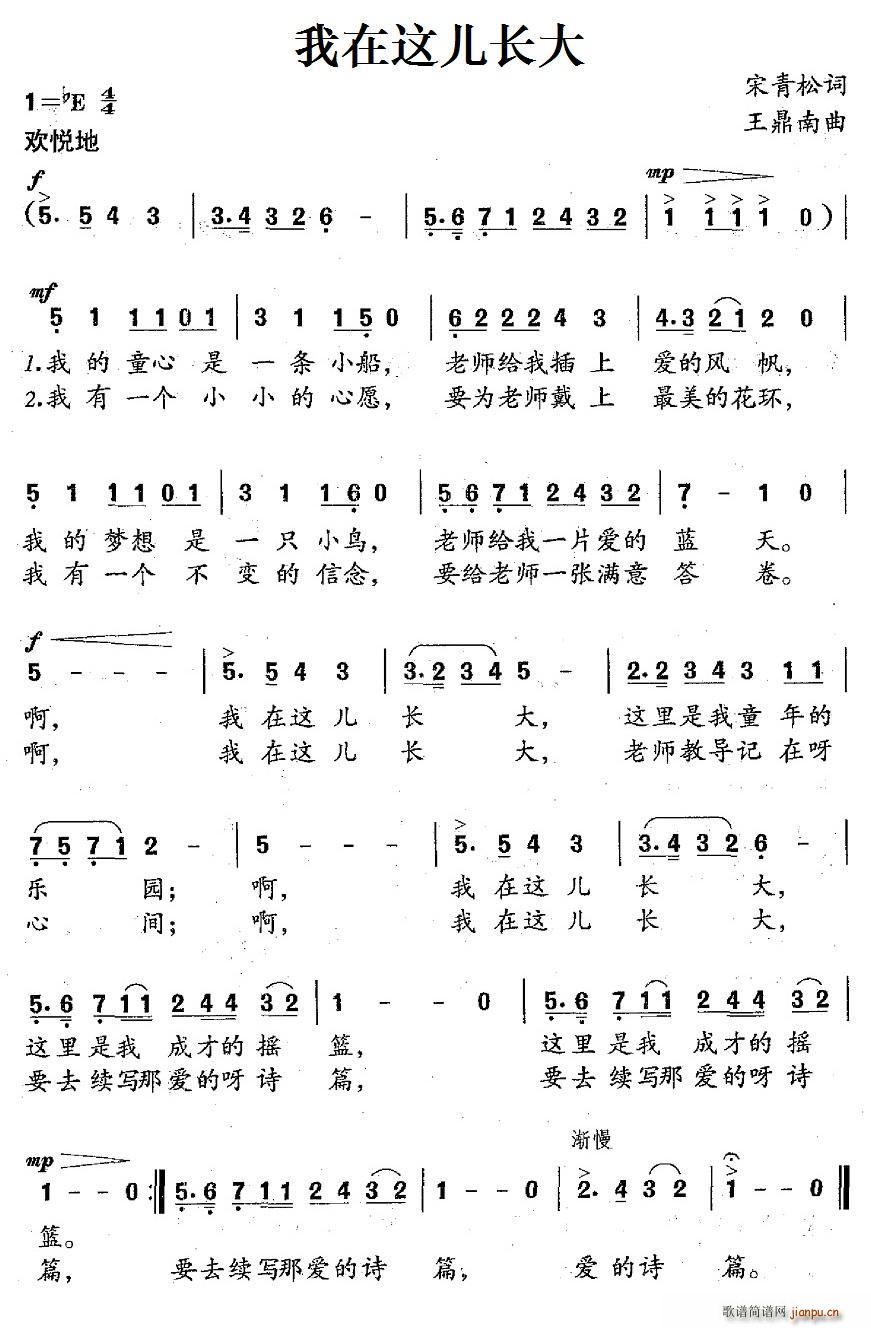 我在这儿长大
宋青松词
1=♭E 4/4
王鼎南曲
欢悦地
f mp
(5. 5 4 3 | 3.4 3 2 6 - | 5.6 7 1 2 4 3 2 | 1 1 1 1 0 ) |
mf
5 1 1 1 0 1 | 3 1 1 5 0 | 6 2 2 2 4 3 | 4.3 2 1 2 0 |
1.我 的 童心 是 一 条 小船, 老师给我插 上 爱的风 帆,
2.我 有 一个 小 小 的 心愿, 要为老师戴 上 最美的花环,
5 1 1 1 0 1 | 3 1 1 6 0 | 5 6 7 1 2 4 3 2 | 7 - 1 0 |
我 的 梦想 是 一 只 小鸟, 老师给我一片爱的 蓝 天。
我 有 一个 不 变 的 信念, 要给老师一张满意 答 卷。
f
5 - - - | 5. 5 4 3 | 3.2 3 4 5 - | 2.2 3 4 3 1 1 |
啊, 我 在这 儿 长 大, 这里是我童 年的
啊, 我 在这 儿 长 大, 老师教导记 在呀
7 5 7 1 2 - | 5 - - - | 5. 5 4 3 | 3.4 3 2 6 - |
乐 园; 啊, 我 在这 儿 长 大,
心 间; 啊, 我 在这 儿 长 大,
5.6 7 1 1 2 4 4 3 2 | 1 - - 0 | 5.6 7 1 1 2 4 4 3 2 |
这里是我 成才的摇 篮, 这里是我 成才的摇
要去续写那爱的呀诗 篇, 要去续写那爱的呀诗
mp 渐慢
1 - - 0 :‖ 5.6 7 1 1 2 4 3 2 | 1 - - 0 | 2. 4 3 2 | 1 - - 0 ‖
篮。
篇, 要去续写那爱的诗 篇, 爱的诗 篇。
歌谱简谱网 jianpu.cn